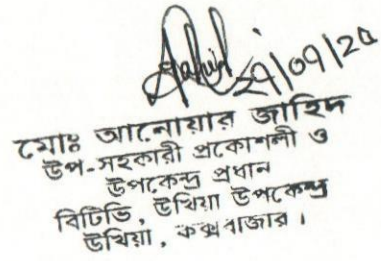 ২৭/০৭/২৫
মোঃ আনোয়ার জাহিদ
উপ-সহকারী প্রকোশলী ও
উপকেন্দ্র প্রধান
বিটিভি, উখিয়া উপকেন্দ্র
উখিয়া, কক্সবাজার।